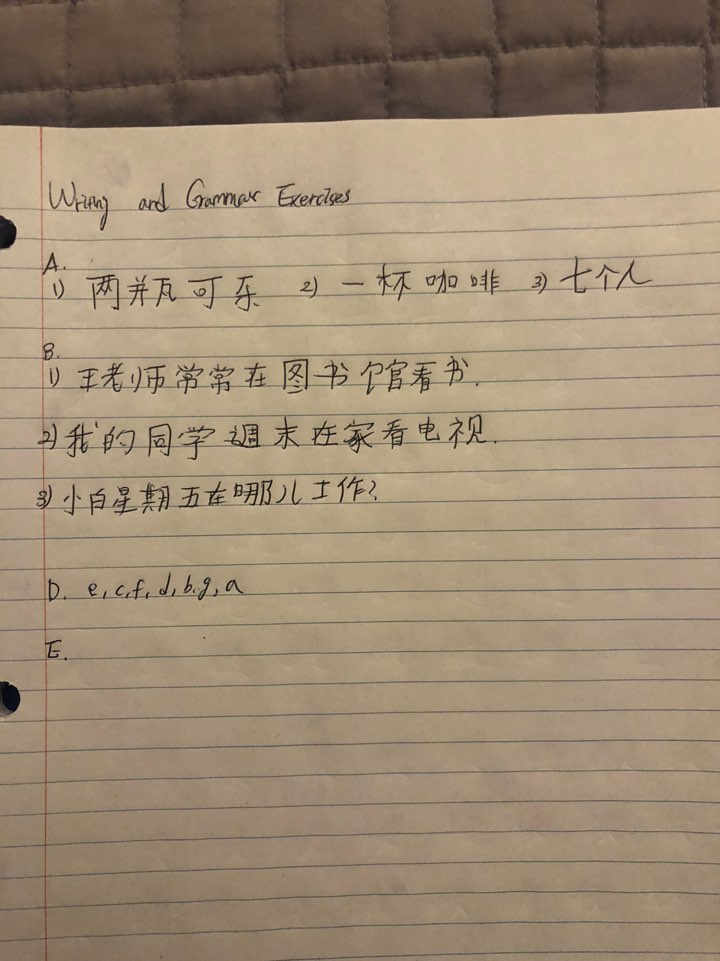 Writing and Grammar Exercises
A.
1) 两瓶可乐 2) 一杯咖啡 3) 七个人
B.
1) 王老师常常在图书馆看书.
2) 我的同学週末在家看电视.
3) 小白星期五在哪儿工作?
D. e, c, f, d, b, g, a
E.